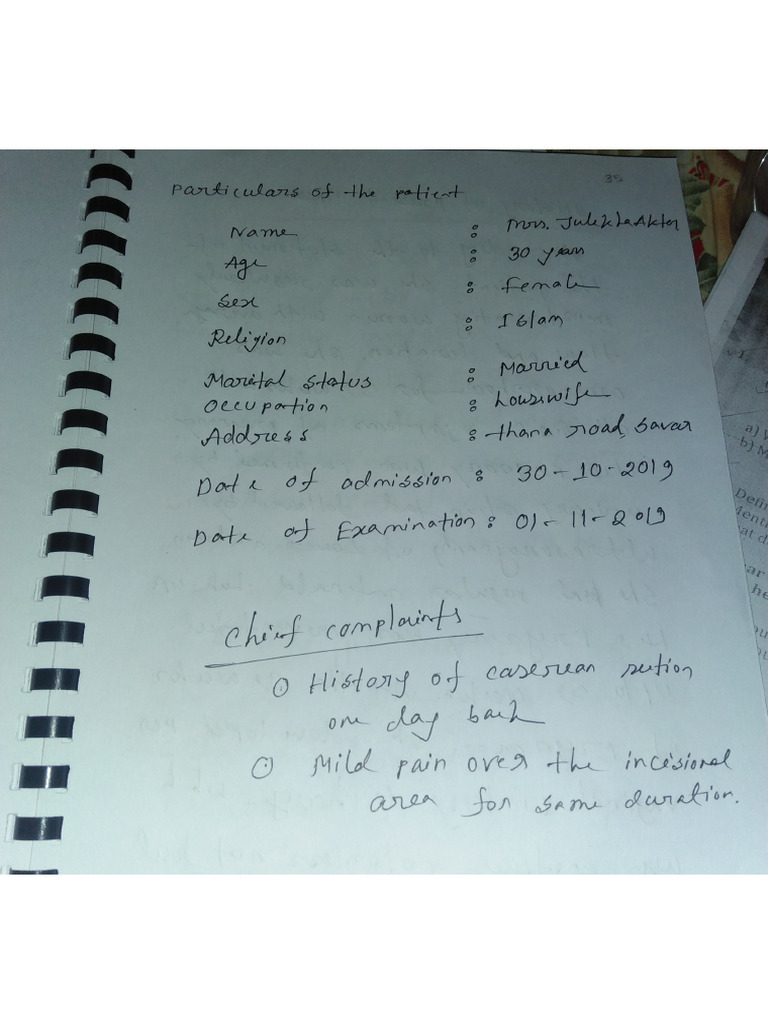 35
Particulars of the patient
Name : Mrs. Julekha Akter
Age : 30 years
Sex : Female
Religion : Islam
Marital status : Married
Occupation : housewife
Address : thana road, Savar
Date of admission : 30-10-2019
Date of Examination : 01-11-2019
Chief complaints
① History of caserean section
one day back
① Mild pain over the incisional
area for same duration.
a) V
b) M
Defin
at d
ar
he